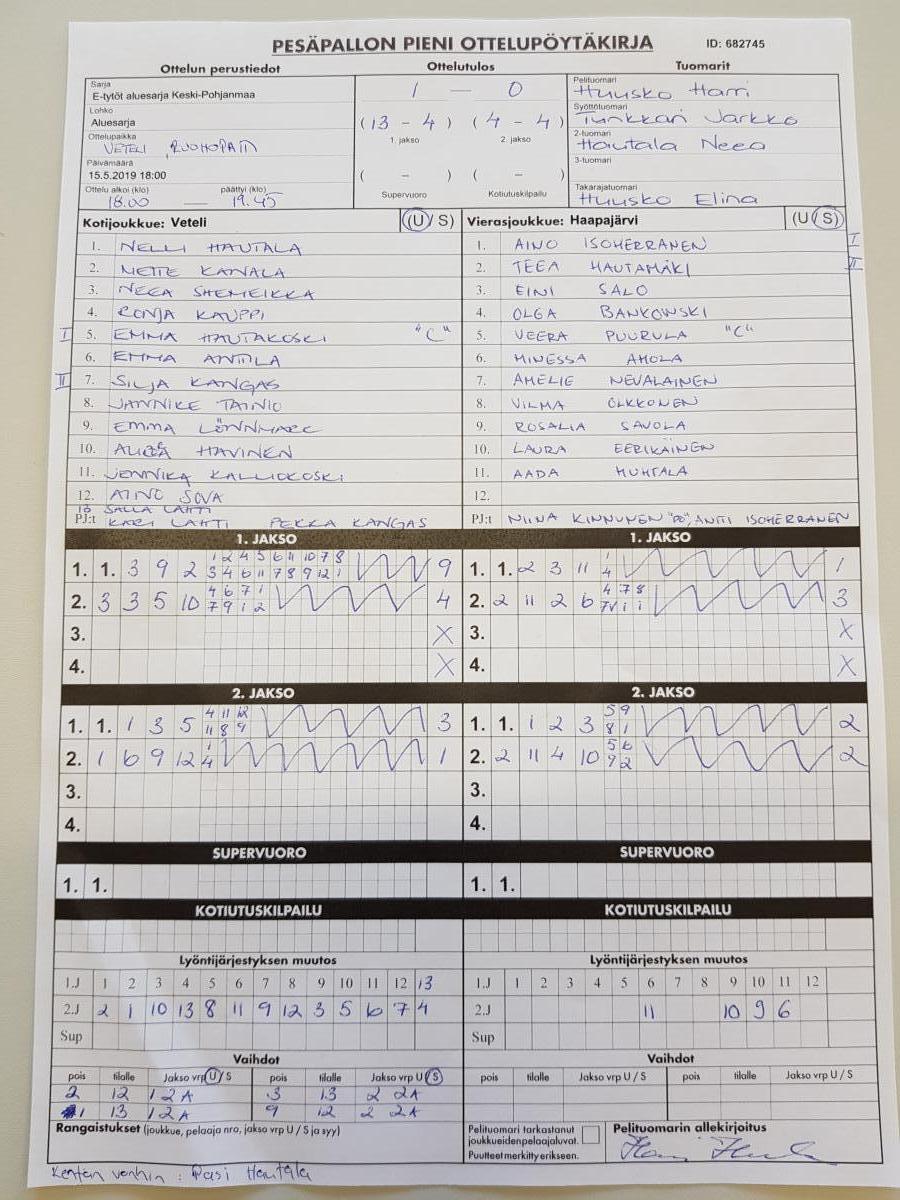 PESÄPALLON PIENI OTTELUPÖYTÄKIRJA ID: 682745
Ottelun perustiedot Ottelutulos Tuomarit
Sarja
E-tytöt aluesarja Keski-Pohjanmaa
Lohko
Aluesarja
Ottelupaikka
VETELI, RUOHOPATTI
Päivämäärä
15.5.2019 18:00
Ottelu alkoi (klo) päättyi (klo)
18.00 — 19.45
1 — 0
(13 - 4) (4 - 4)
1. jakso 2. jakso
( - ) ( - )
Supervuoro Kotiutuskilpailu
Pelituomari
Huusko Harri
Syöttötuomari
Tunkkari Jarkko
2-tuomari
Hautala Neea
3-tuomari
Takarajatuomari
Huusko Elina
Kotijoukkue: Veteli (U/S)
1. NELLI HAUTALA
2. NETTE KAINALA
3. NEEA SHEMEIKKA
4. RONJA KAUPPI
I 5. EMMA HAUTAKOSKI "C"
6. EMMA ANTTILA
II 7. SILJA KANGAS
8. JANNIKE TAINIO
9. EMMA LÖNNMARK
10. HAVINEN
11. JENNIKA KALLIOKOSKI
12. AINO SOVA
13 SALLA LAHTI
PJ:t KARI LAHTI PEKKA KANGAS
Vierasjoukkue: Haapajärvi (U/S)
1. AINO ISOHERRANEN I
2. TEEA HAUTAMÄKI II
3. EINI SALO
4. OLGA BANKOWSKI
5. VEERA PUURULA "C"
6. MINESSA AHOLA
7. AMELIE NEVALAINEN
8. VILMA OLKKONEN
9. ROSALIA SAVOLA
10. LAURA EERIKÄINEN
11. AADA HUHTALA
12.
PJ:t NIINA KINNUNEN "PJ", ANTTI ISOHERRANEN
1. JAKSO
1 2 4 5 6 11 10 7 8
1. 1. 3 9 2 3 4 6 11 7 8 9 12 1 9
4 6 7 1
2. 3 3 5 10 7 9 1 2 4
3. X
4. X
1. JAKSO
1
1. 1. 2 3 11 4 1
4 7 8
2. 2 11 2 6 7 1 1 3
3. X
4. X
2. JAKSO
4 11 12
1. 1. 1 3 5 11 8 9 3
1
2. 1 6 9 12 4 1
3.
4.
2. JAKSO
5 9
1. 1. 1 2 3 8 1 2
5 6
2. 2 11 4 10 9 2 2
3.
4.
SUPERVUORO SUPERVUORO
1. 1. 1. 1.
KOTIUTUSKILPAILU KOTIUTUSKILPAILU
Lyöntijärjestyksen muutos
1.J 1 2 3 4 5 6 7 8 9 10 11 12 13
2.J 2 1 10 13 8 11 9 12 3 5 6 7 4
Sup
Lyöntijärjestyksen muutos
1.J 1 2 3 4 5 6 7 8 9 10 11 12
2.J 11 10 9 6
Sup
Vaihdot
pois tilalle Jakso vrp U/S pois tilalle Jakso vrp U/S
2 12 1 2A 3 13 2 2A
1 13 1 2A 9 12 2 2A
Vaihdot
pois tilalle Jakso vrp U / S pois tilalle Jakso vrp U / S
Rangaistukset (joukkue, pelaaja nro, jakso vrp U / S ja syy)
Pelituomari tarkastanut
joukkueidenpelaajaluvat.
Puutteet merkitty erikseen.
Pelituomarin allekirjoitus
Kentän vanhin : Pasi Hautala